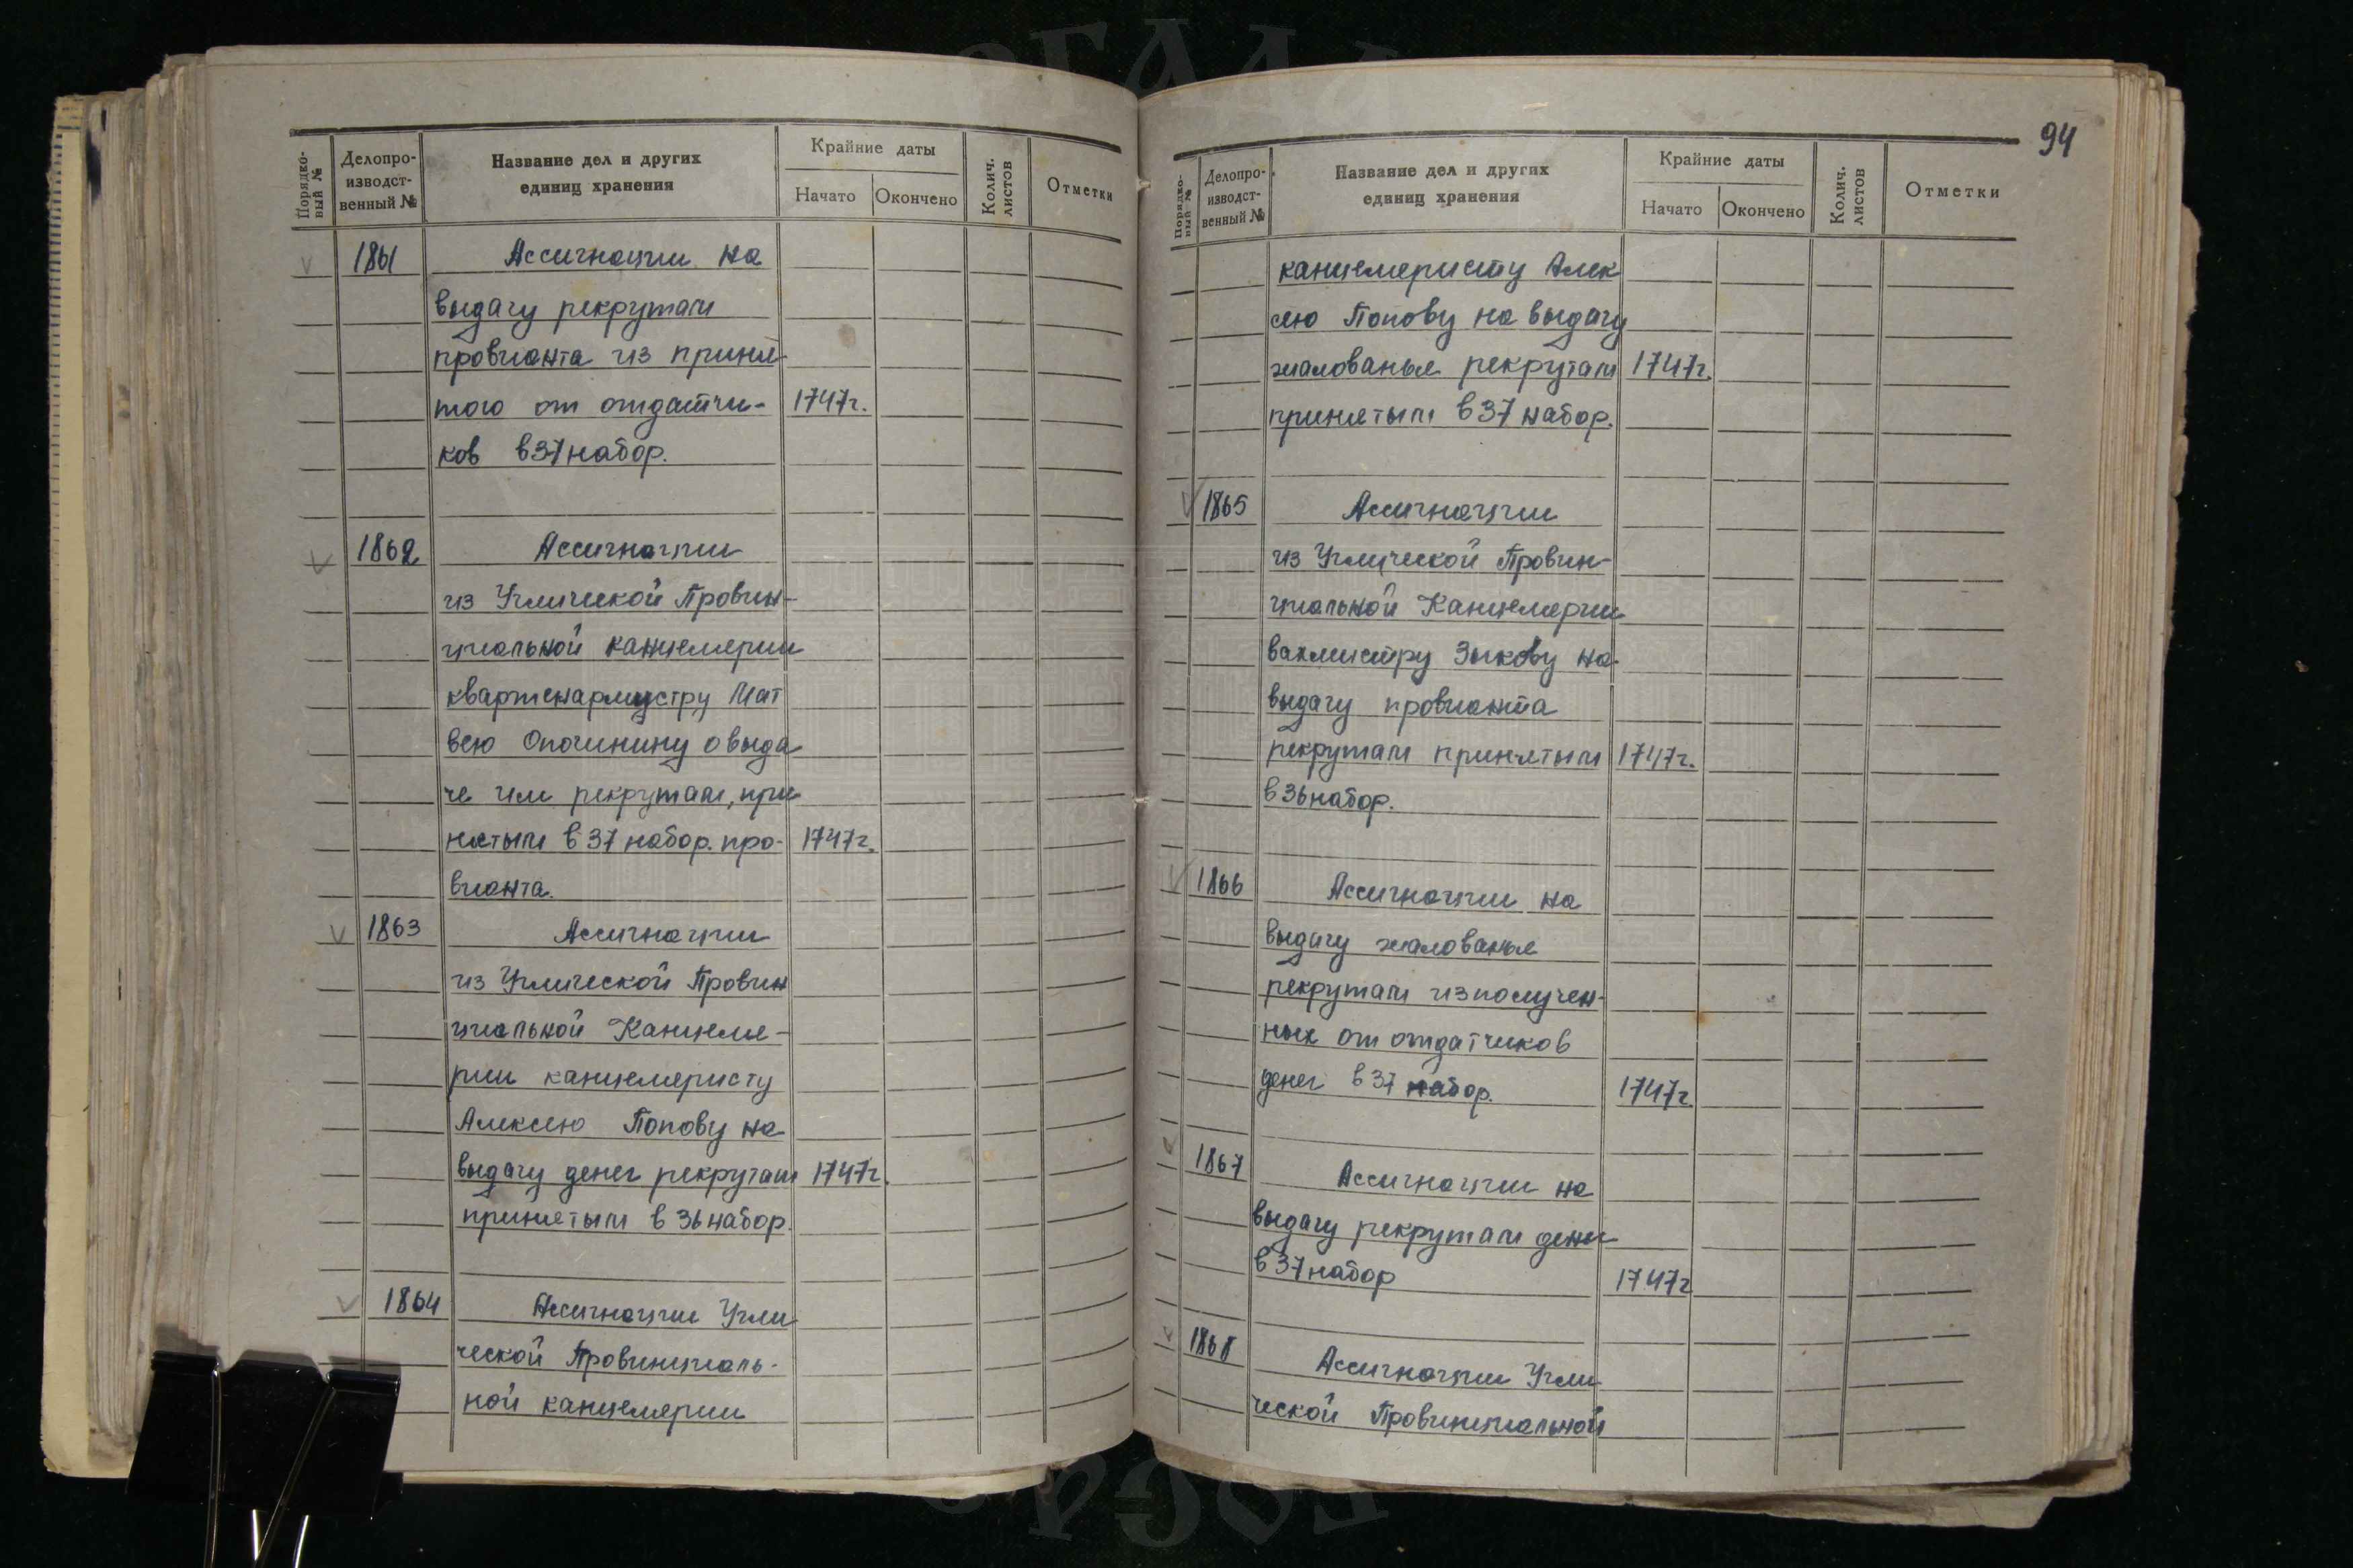 Порядко-
вый №
Делопро-
изводст-
венный №
Название дел и других
единиц хранения
Крайние даты
Начато
Окончено
Колич.
листов
Отметки
1861 Ассигнации на
выдачу рекрутам
провианта из приня-
того от отдатчи- 1747г.
ков в 37 набор.
1862 Ассигнации
из Угличской Провин-
циальной канцелярии
квартенармистру Мат
вею Опочинину о выда
че им рекрутам, при
нятым в 37 набор. про- 1747г.
вианта.
1863 Ассигнации
из Углической Провин
циальной Канцеля-
рии канцеляристу
Алексею Попову на
выдачу денег рекрутам 1747г.
принятым в 36 набор.
1864 Ассигнации Угли
ческой Провинциаль-
ной канцелярии
94
Порядко-
вый №
Делопро-
изводст-
венный №
Название дел и других
единиц хранения
Крайние даты
Начато
Окончено
Колич.
листов
Отметки
канцеляристу Алек
сею Попову на выдачу
жалованья рекрутам 1747г.
принятым в 37 набор.
1865 Ассигнации
из Углической Провин-
циальной Канцелярии
вахмистру Зыкову на
выдачу провианта
рекрутам принятым 1747г.
в 36 набор.
1866 Ассигнации на
выдачу жалованья
рекрутам из получен-
ных от отдатчиков
денег в 37 набор. 1747г.
1867 Ассигнации на
выдачу рекрутам денег
в 37 набор 1747г
1868 Ассигнации Угли
ческой Провинциальной